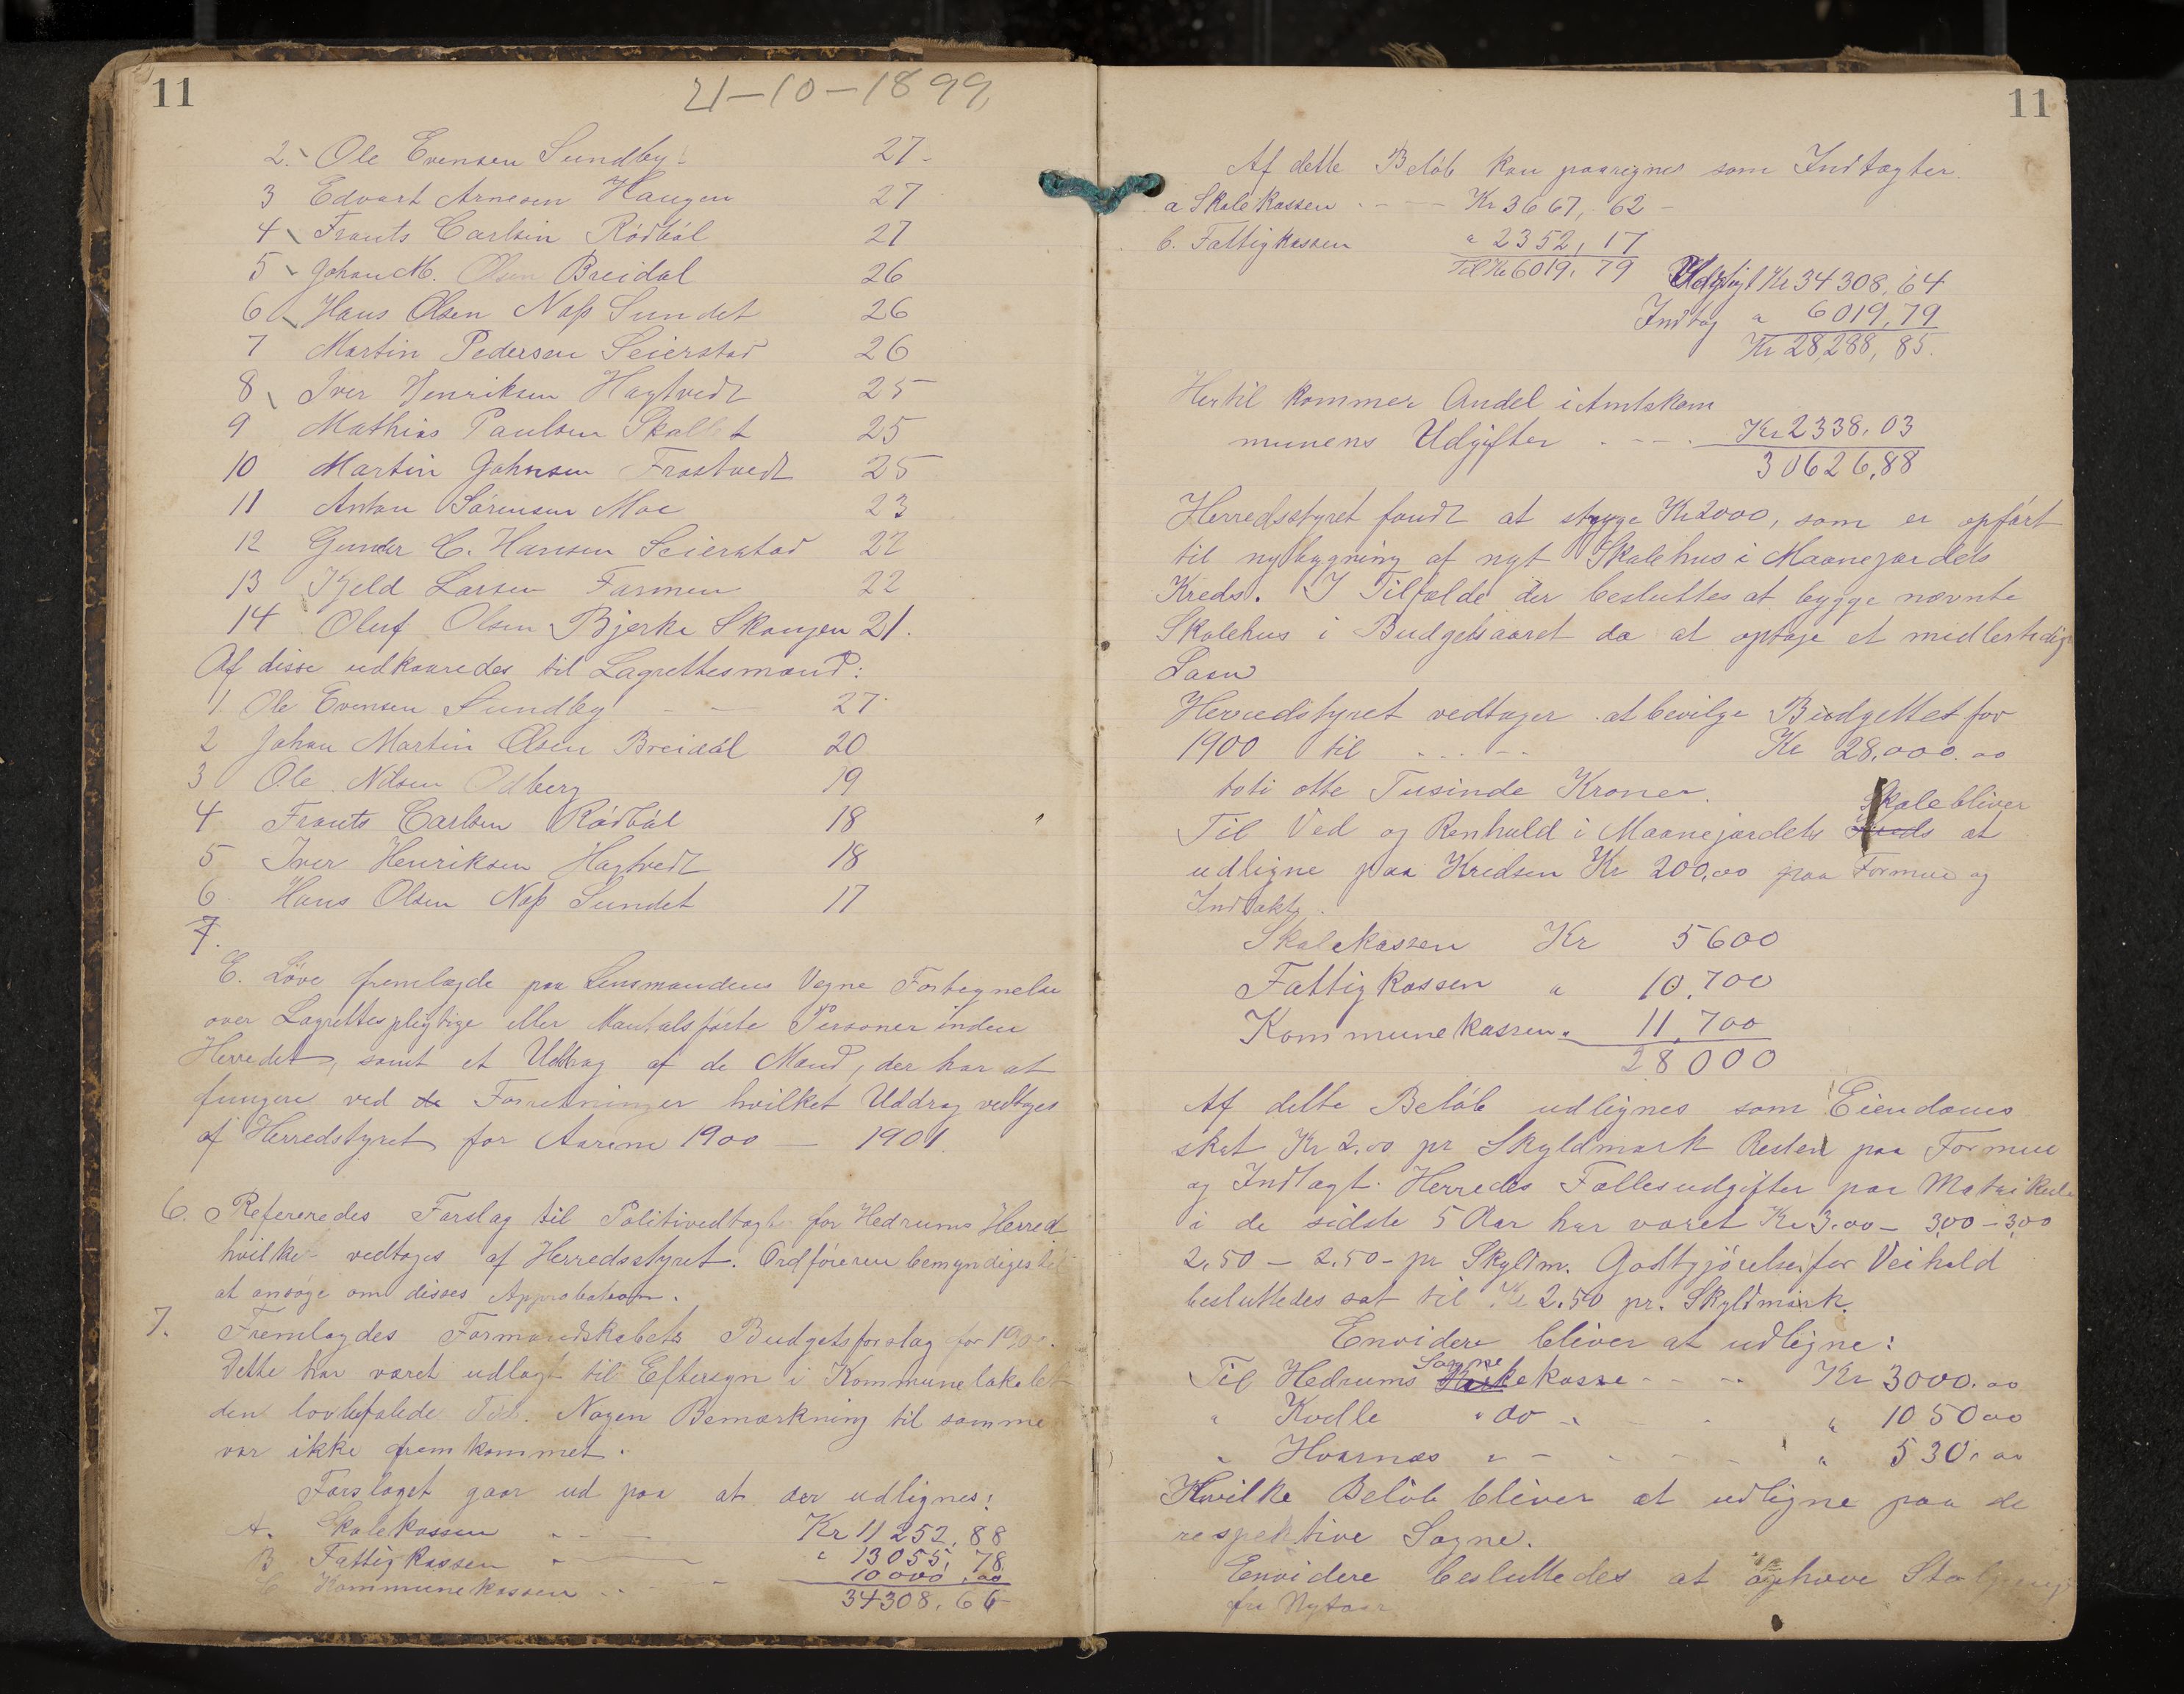 11
21-10-1899,
2. Ole Evensen Sundby. 27
3 Edvart Arnesen Haugen 27
4 Frants Carlsen Rödböl 27
5 Johan M. Olsen Breidal 26
6 Hans Olsen Nøss Sundet 26
7 Martin Pedersen Seierstad 26
8 Iver Henriksen Hagtvedt 25
9 Mathias Paulsen Skallet 25
10 Martin Johnsen Frostvedt 25
11 Anton Sörensen Moe 23
12 Gunder C. Hansen Seierstad 22
13 Kjeld Larsen Farmen 22
14 Oluf Olsen Bjerke Skougen 21.
Af disse udkaaredes til Lagrettesmænd:
1 Ole Evensen Sundby - - 27
2 Johan Martin Olsen Breidal 20
3 Ole Nilsen Odberg 19
4 Frants Carlsen Rödböl 18
5 Iver Henriksen Hagtvedt 18
6 Hans Olsen Nøss Sundet 17
7.
E. Löve fremlagde paa Lensmandens Vegne Fortegnelse
over Lagrettespligtige eller Mantalsførte Personer inden
Herredet, samt et Uddrag af de Mænd, der har at
fungere ved de Forretninger hvilket Uddrag vedtages
af Herredstyret for Aarene 1900 — 1901.
6. Refereredes Forslag til Politivedtægt for Hedrums Herred
hvilke vedtages af Herredsstyret. Ordföreren bemyndiges til
at ansöge om disses Approbation.
7. Fremlagdes Formandskabets Budgetsforslag for 1900.
Dette har været udlagt til Eftersyn i Kommunelokalet
den lovbefalede Tid. Nogen Bemærkning til samme
var ikke fremkommet.
Forslaget gaar ud paa at der udlignes:
A. Skolekassen - - Kr 11252,88
B Fattigkassen - " 13055,78
C Kommunekassen - - 10000,00
34308,66
11
Af dette Belöb kan paaregnes som Indtægter
a Skolekassen - - - Kr 3667,62 -
b. Fattigkassen " 2352,17
Til Kr 6019,79
Udgift Kr 34308,64
Indtæg " 6019,79
Kr 28,288,85.
Hertil kommer Andel i Amtskom
munens Udgifter - - - Kr 2338,03
30626,88
Herredsstyret fandt at stryge Kr 2000, som er opfört
til nybygning af nyt Skolehus i Maanejordets
Kreds. I Tilfælde der besluttes at bygge nævnte
Skolehus i Budgetsaaret da at optage et midlertidig
Laan
Herredstyret vedtager at bevilge Budgettet for
1900 til - - - - Kr 28,000.00
toti otte Tusinde Kroner.
Skole bliver
Til Ved og Renhold i Maanejordets Kreds at
udligne paa Kredsen Kr 200,00 paa Formue og
Indtækt.
Skolekassen Kr 5600
Fattigkassen " 10,700
Kommunekassen " 11,700
28000
Af dette Belöb udlignes som Eiendoms
skat Kr 2.00 pr Skyldmark Resten paa Formue
og Indtægt. Herredes Fællesudgifter paa Matrikule
i de sidste 5 Aar har været Kr 3,00 - 3,00 - 3,00
2,50 - 2,50 - pr Skyldm. Godtgjörelse for Veihold
besluttedes sat til Kr 2.50 pr. Skyldmark.
Envidere bliver at udligne:
Sogne
Til Hedrums Kirkekasse - - - - Kr 3000.00
" Kvelle " do - - - " 1050 00
" Hvarnæs " - - - - " 530.00
Hvilke Belöb bliver at udligne paa de
respektive Sogne.
Envidere besluttedes at ophæve
fra Nytaar